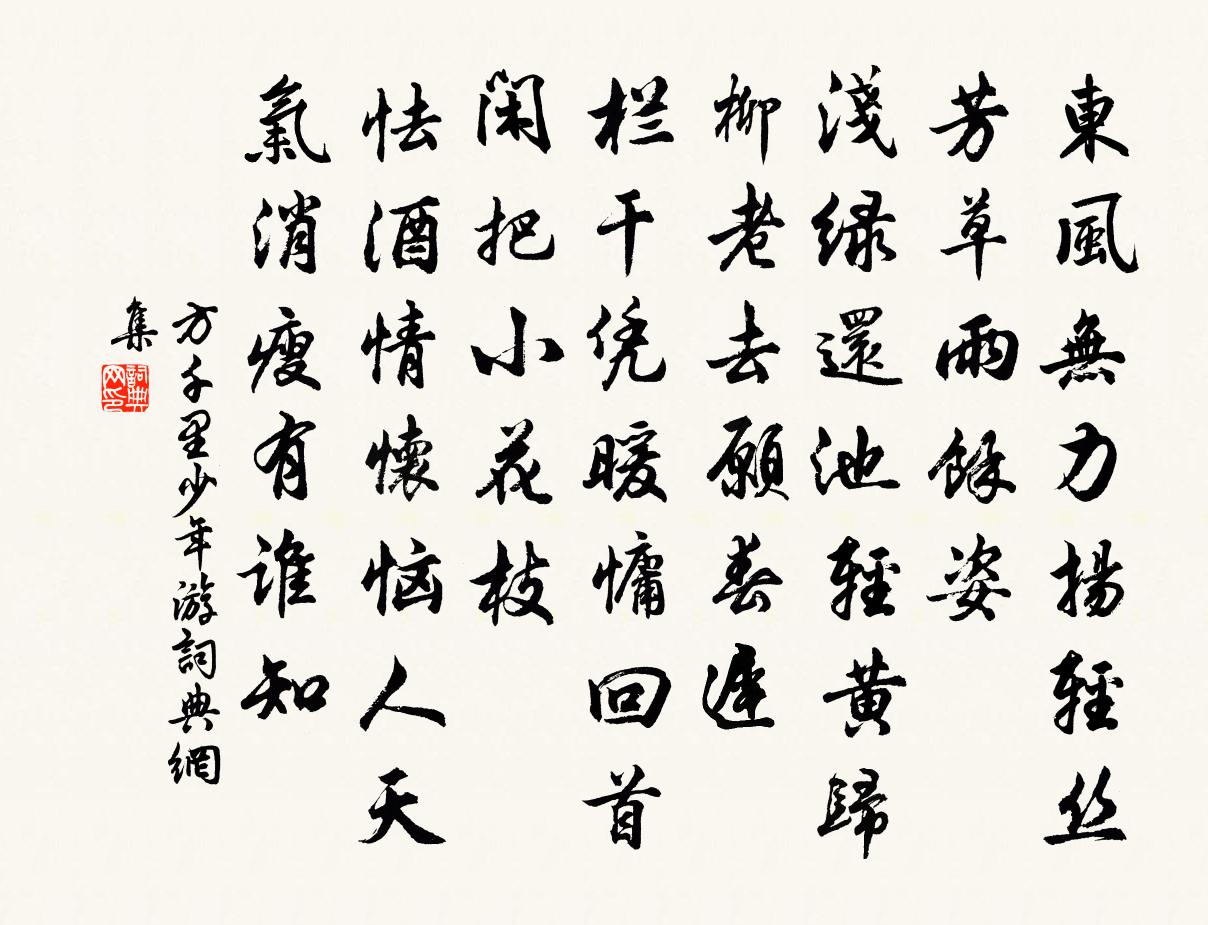 東風無力揚輕丝
芳草雨餘姿
淺绿還池輕黄歸
柳老去願春遲
栏干凭暖慵回首
闲把小花枝
怯酒情懷恼人天
氣消瘦有谁知
方千里少年游詞典網
集
詞典网印